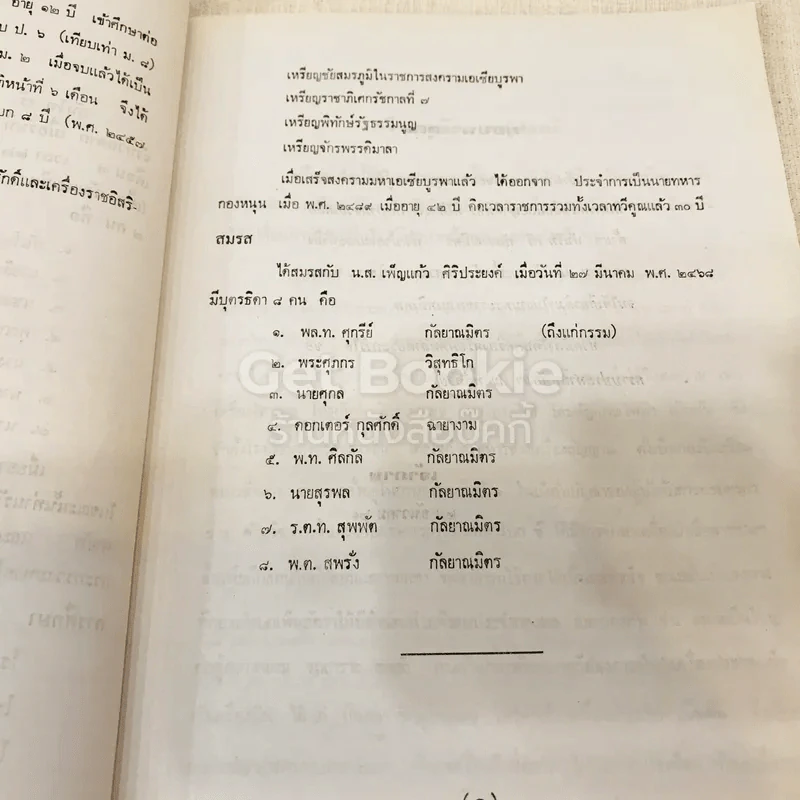 อายุ ๑๒ ปี เข้าศึกษาต่อ
ป. ๖ (เทียบเท่า ม. ๘)
ม. ๒ เมื่อจบแล้วได้เป็น
หน้าที่ ๖ เดือน จึงได้
๘ ปี (พ.ศ. ๒๔๕๗
ศักดิ์และเครื่องราชอิสริ-
เหรียญชัยสมรภูมิในราชการสงครามเอเซียบูรพา
เหรียญราชาภิเศกรัชกาลที่ ๗
เหรียญพิทักษ์รัฐธรรมนูญ
เหรียญจักรพรรดิมาลา
เมื่อเสร็จสงครามมหาเอเซียบูรพาแล้ว ได้ออกจาก ประจำการเป็นนายทหาร
กองหนุน เมื่อ พ.ศ. ๒๔๘๙ เมื่ออายุ ๔๒ ปี คิดเวลาราชการรวมทั้งเวลาทวีคูณแล้ว ๓๐ ปี
สมรส
ได้สมรสกับ น.ส. เพ็ญแก้ว ศิริประยงค์ เมื่อวันที่ ๒๗ มีนาคม พ.ศ. ๒๔๖๘
มีบุตรธิดา ๘ คน คือ
๑. พล.ท. ศุกรีย์ กัลยาณมิตร (ถึงแก่กรรม)
๒. พระศุภกร วิสุทธิโก
๓. นายศุกล กัลยาณมิตร
๔. ดอกเตอร์ กุลศักดิ์ ฉายางาม
๕. พ.ท. ศิลกัล กัลยาณมิตร
๖. นายสุรพล กัลยาณมิตร
๗. ร.ต.ท. สุพพัต กัลยาณมิตร
๘. พ.ต. สพรั่ง กัลยาณมิตร
Get Bookie
ร้านหนังสือบุ๊คกี้